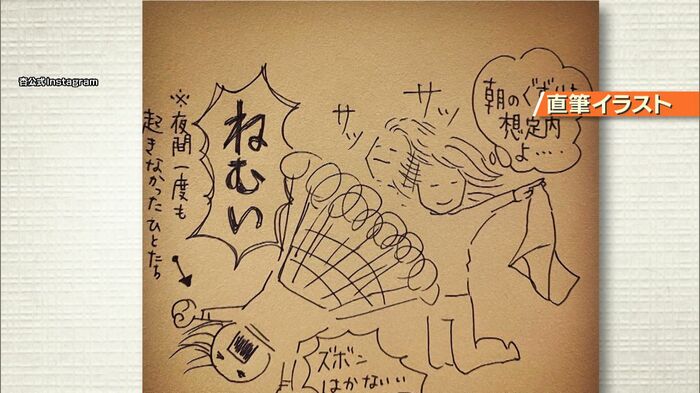 杏公式Instagram
直筆イラスト
朝のぐずりは
想定内
よ....
サッ
サッ
ねむい
※夜間一度も
起きなかったひとたち
ズボン
はかないぃ